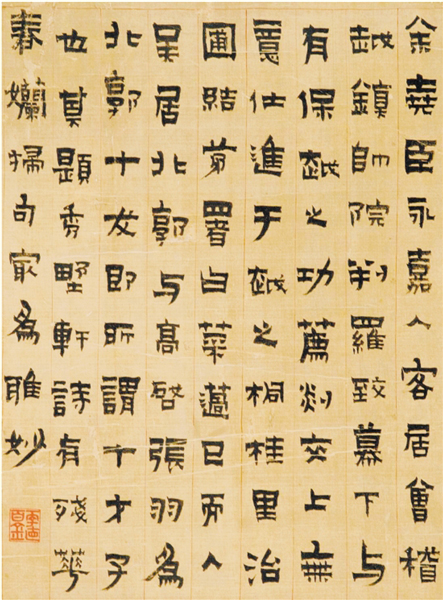 余堯臣永嘉人客居會稽
越鎮帥院判羅致幕下与
有保越之功薦剡交上無
意仕進于越之桐桂里治
圃結茅署曰菜薖已而入
吳居北郭与高啓張羽為
北郭十友即所謂十才子
也其題秀野軒詩有殘花
春孏掃句冣為雅妙